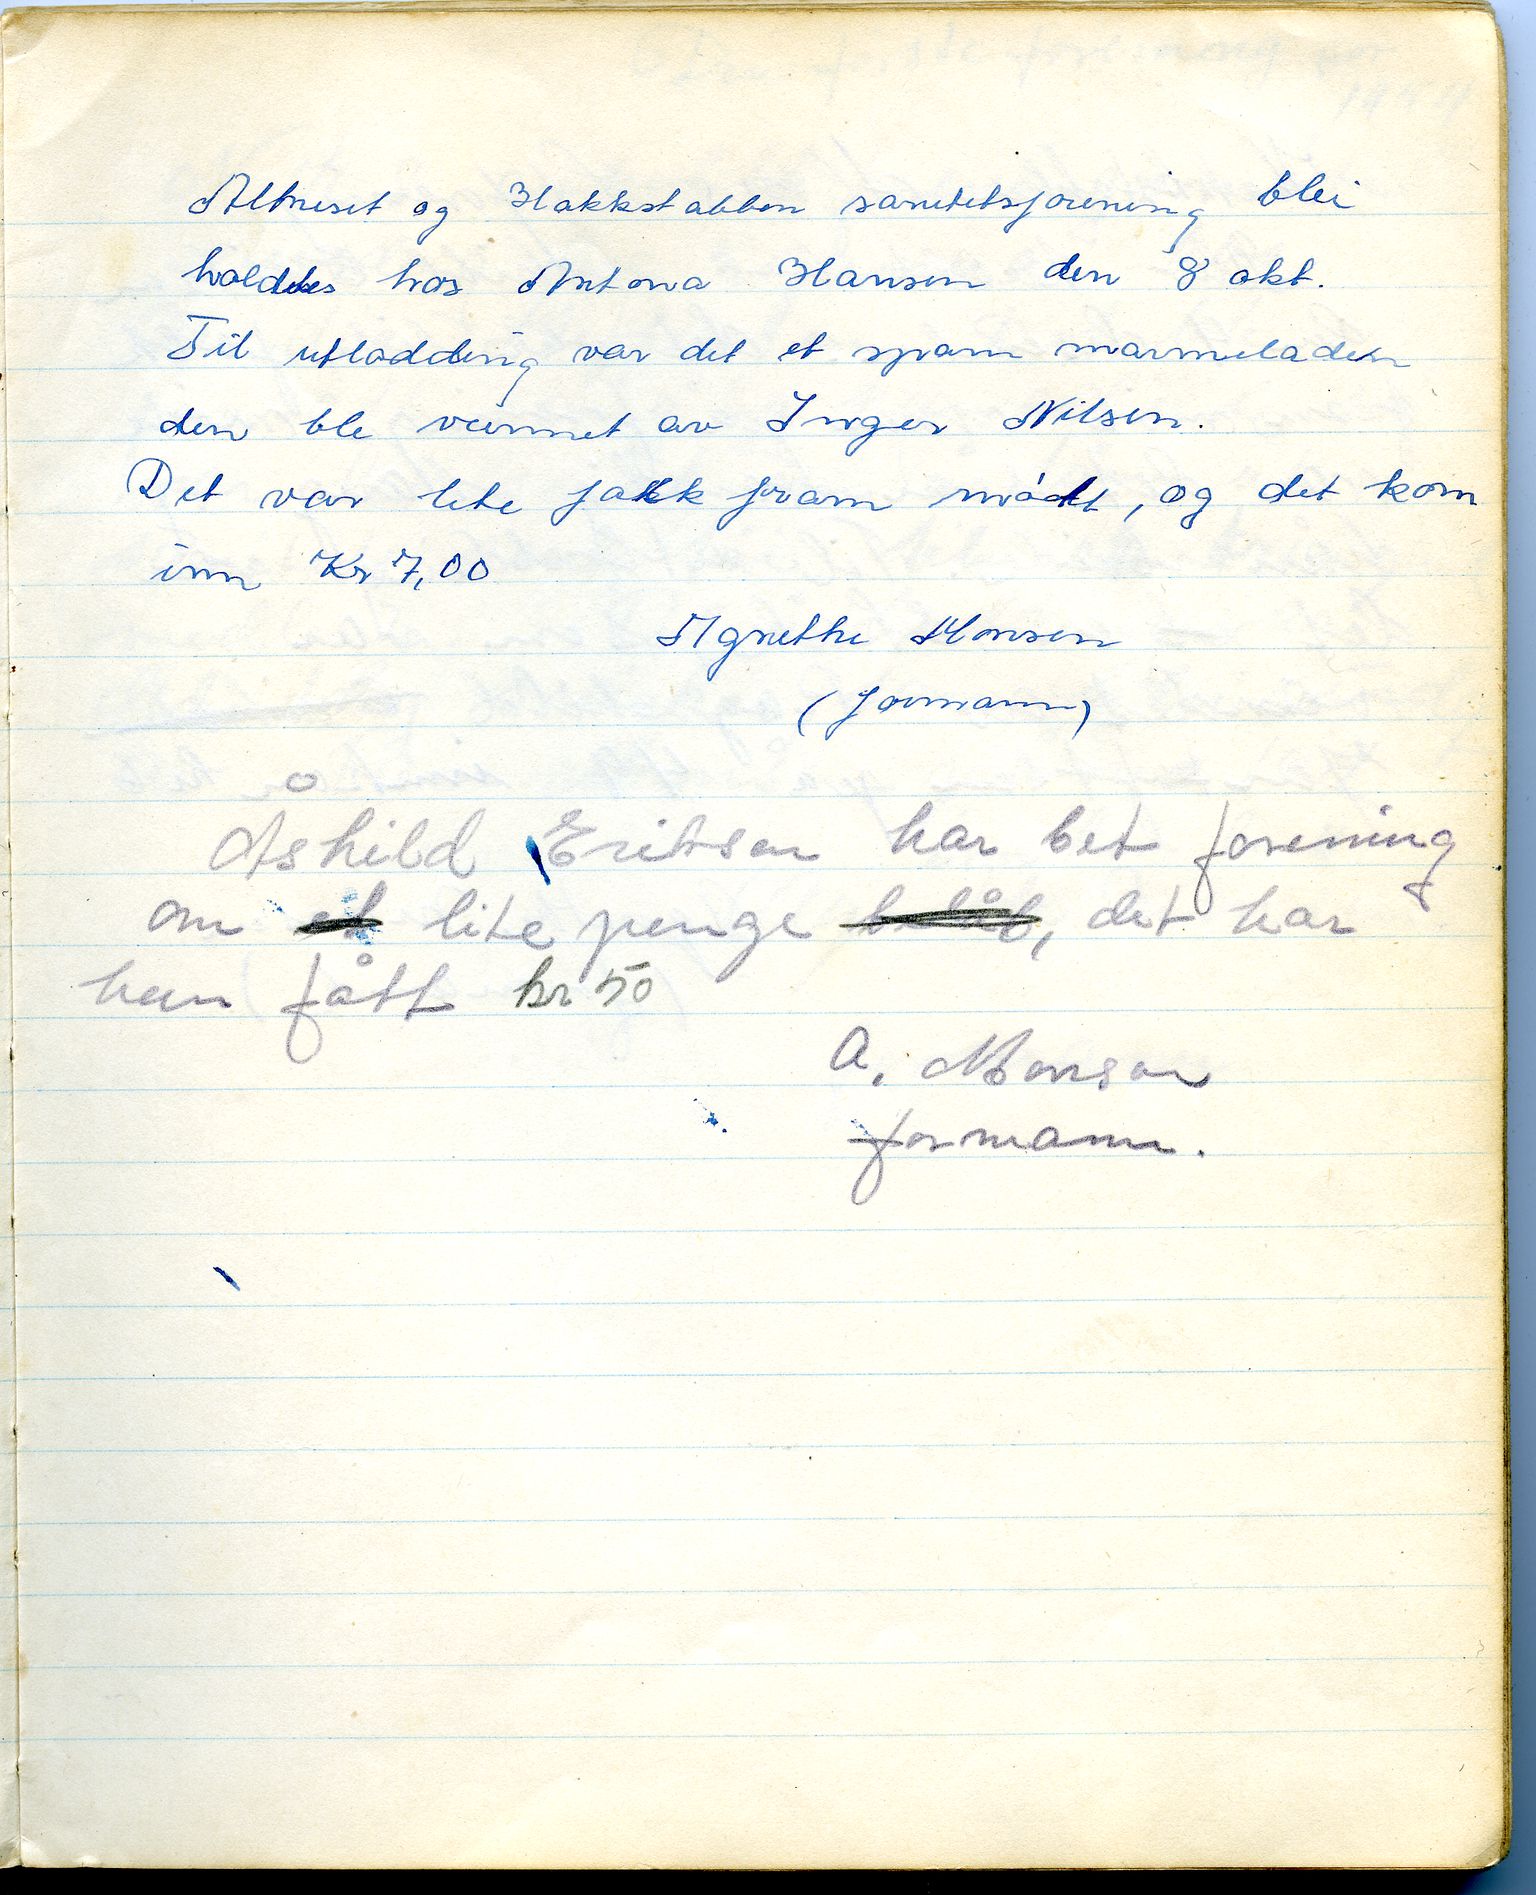 Altneset og Hakkstabben sanitetsforening blei
holdtes hos Antona Hansen den 8 okt.
Til utlodding var det et spam marmelader
den ble vunnet av Inger Nilsen.
Det var lite falkk fram mødt, og det kom
inn Kr 7,00
Agnethe Monsen
(formann)
Åshild Eriksen har bet forening
om et lite penge, det har
hun fått kr 50
A. Monsen
formann.